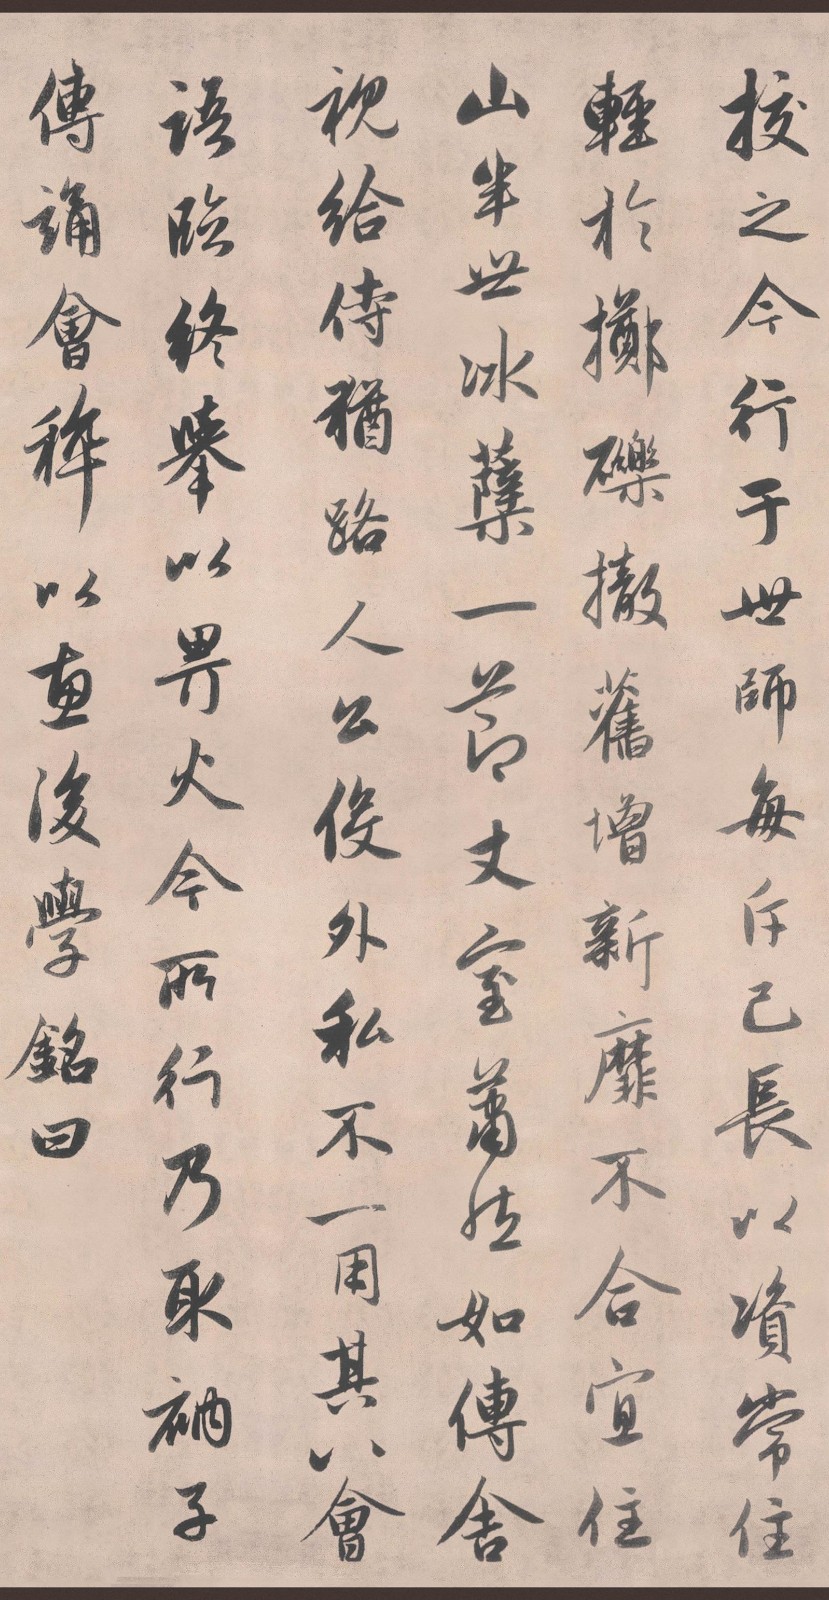 授之今行于世師每斥己長以資常住
輕於擲礫撤舊增新靡不合宜住
山半世冰蘖一節丈室蕭然如傳舍
視給侍猶路人公役外私不一用其以會
語臨終舉以畀火今所行乃耴衲子
傳誦會稡以惠後學銘曰